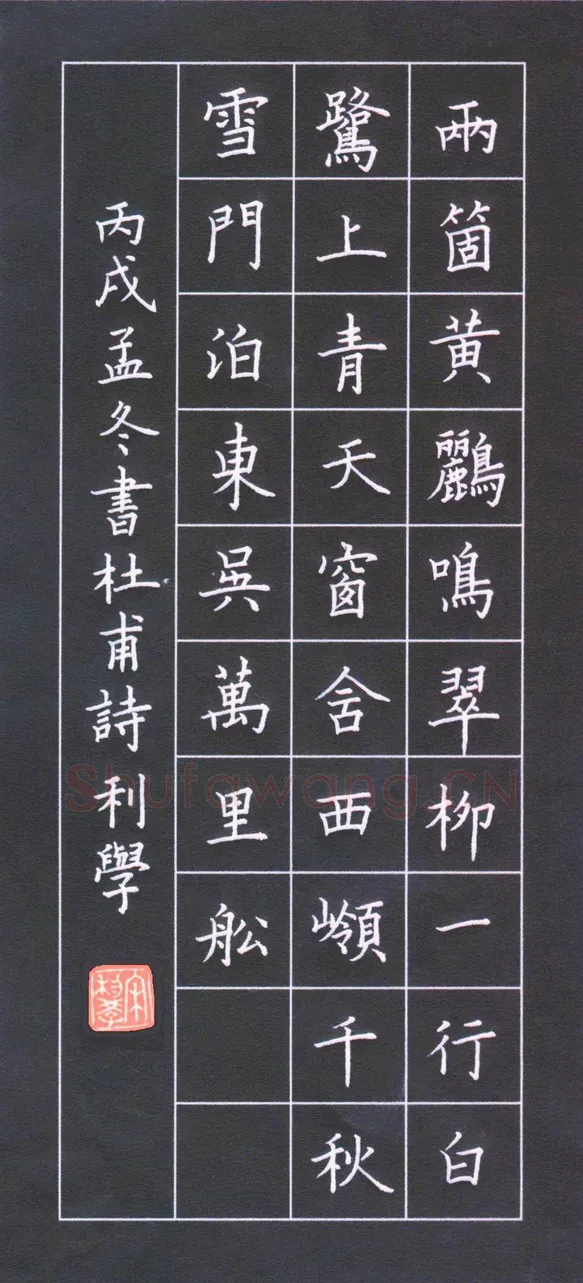 兩箇黄鸝鳴翠柳一行白
鷺上青天窗含西嶺千秋
雪門泊東吳萬里舩
丙戌孟冬書杜甫詩 利學
Shufawang.CN